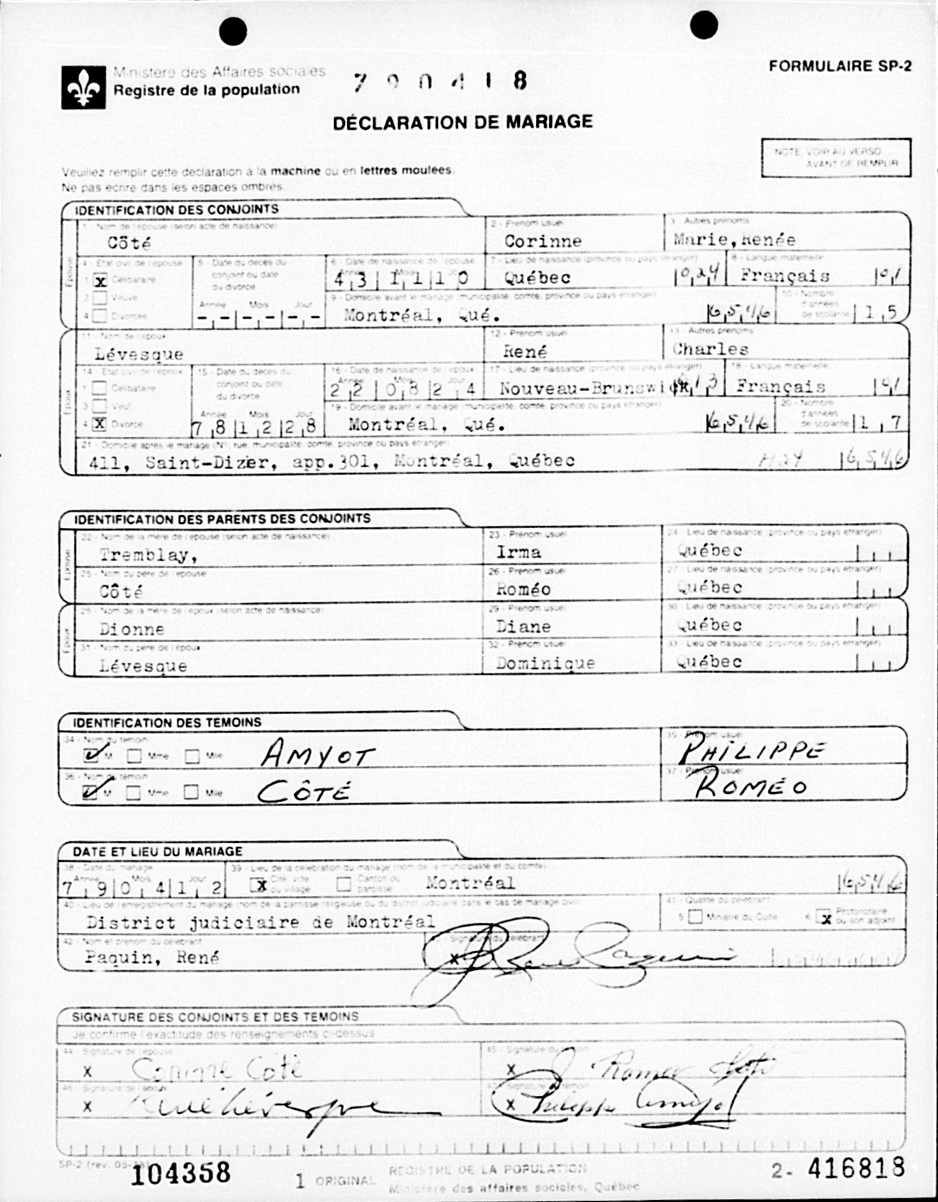 Ministère des Affaires sociales
Registre de la population
790418
FORMULAIRE SP-2
DÉCLARATION DE MARIAGE
NOTE: VOIR AU VERSO
AVANT DE REMPLIR
Veuillez remplir cette déclaration à la machine ou en lettres moulées.
Ne pas écrire dans les espaces ombrés.
IDENTIFICATION DES CONJOINTS
1 - Nom de l'épouse (selon acte de naissance) 2 - Prénom usuel 3 - Autres prénoms
Côté Corinne Marie, Renée
4 - État civil de l'épouse 5 - Date du décès du conjoint ou date du divorce 6 - Date de naissance de l'épouse 7 - Lieu de naissance (province ou pays étranger) 8 - Langue maternelle
Épouse
1 X Célibataire 43 11 10 Québec 0,24 Français 0,1
3 Veuve Année Mois Jour 9 - Domicile avant le mariage (municipalité, comté, province ou pays étranger) 10 - Nombre d'années de scolarité
4 Divorcée - - - - - - Montréal, Qué. 6,5,4,6 1,5
11 - Nom de l'époux 12 - Prénom usuel 13 - Autres prénoms
Lévesque René Charles
14 - État civil de l'époux 15 - Date du décès du conjoint ou date du divorce 16 - Date de naissance de l'époux 17 - Lieu de naissance (province ou pays étranger) 18 - Langue maternelle
Époux
1 Célibataire Année Mois Jour 22 08 24 Nouveau-Brunswick 13 Français 0,1
3 Veuf Année Mois Jour 19 - Domicile avant le mariage (municipalité, comté, province ou pays étranger) 20 - Nombre d'années de scolarité
4 X Divorcé 78 12 28 Montréal, Qué. 6,5,4,6 1,7
21 - Domicile après le mariage (N°, rue, municipalité, comté, province ou pays étranger)
411, Saint-Dizier, app.301, Montréal, Québec H2Y 6,5,4,6
IDENTIFICATION DES PARENTS DES CONJOINTS
22 - Nom de la mère de l'épouse (selon acte de naissance) 23 - Prénom usuel 24 - Lieu de naissance (province ou pays étranger)
Tremblay, Irma Québec
Épouse
25 - Nom du père de l'épouse 26 - Prénom usuel 27 - Lieu de naissance (province ou pays étranger)
Côté Roméo Québec
28 - Nom de la mère de l'époux (selon acte de naissance) 29 - Prénom usuel 30 - Lieu de naissance (province ou pays étranger)
Dionne Diane Québec
Époux
31 - Nom du père de l'époux 32 - Prénom usuel 33 - Lieu de naissance (province ou pays étranger)
Lévesque Dominique Québec
IDENTIFICATION DES TÉMOINS
34 - Nom du témoin 35 - Prénom usuel
M Mme Mlle AMYOT PHILIPPE
36 - Nom du témoin 37 - Prénom usuel
M Mme Mlle CÔTÉ ROMÉO
DATE ET LIEU DU MARIAGE
38 - Date du mariage 39 - Lieu de la célébration du mariage (nom de la municipalité et du comté)
Année Mois Jour
79 04 12 X Cité, ville ou village Canton ou paroisse Montréal 6,5,4,6
40 - Lieu de l'enregistrement du mariage (nom de la paroisse religieuse ou du district judiciaire dans le cas de mariage civil) 41 - Qualité du célébrant
District judiciaire de Montréal 5 Ministre du Culte 6 X Protonotaire ou son adjoint
42 - Nom et prénom du célébrant Signature du célébrant
Paquin, René X René Paquin
SIGNATURE DES CONJOINTS ET DES TÉMOINS
Je confirme l'exactitude des renseignements ci-dessus
44 - Signature de l'épouse 45 - Signature du témoin
X Corinne Côté X Roméo Côté
46 - Signature de l'époux témoin
X René Lévesque X Philippe Amyot
SP-2 (rev. 05- 104358 1 ORIGINAL REGISTRE DE LA POPULATION 2- 416818
Ministère des affaires sociales, Québec